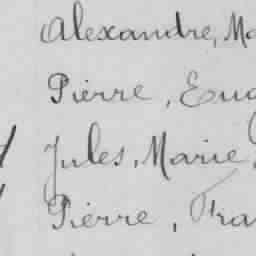 Alexandre, Ma
Pierre, Eug
Jules, Marie,
Pierre, Fra